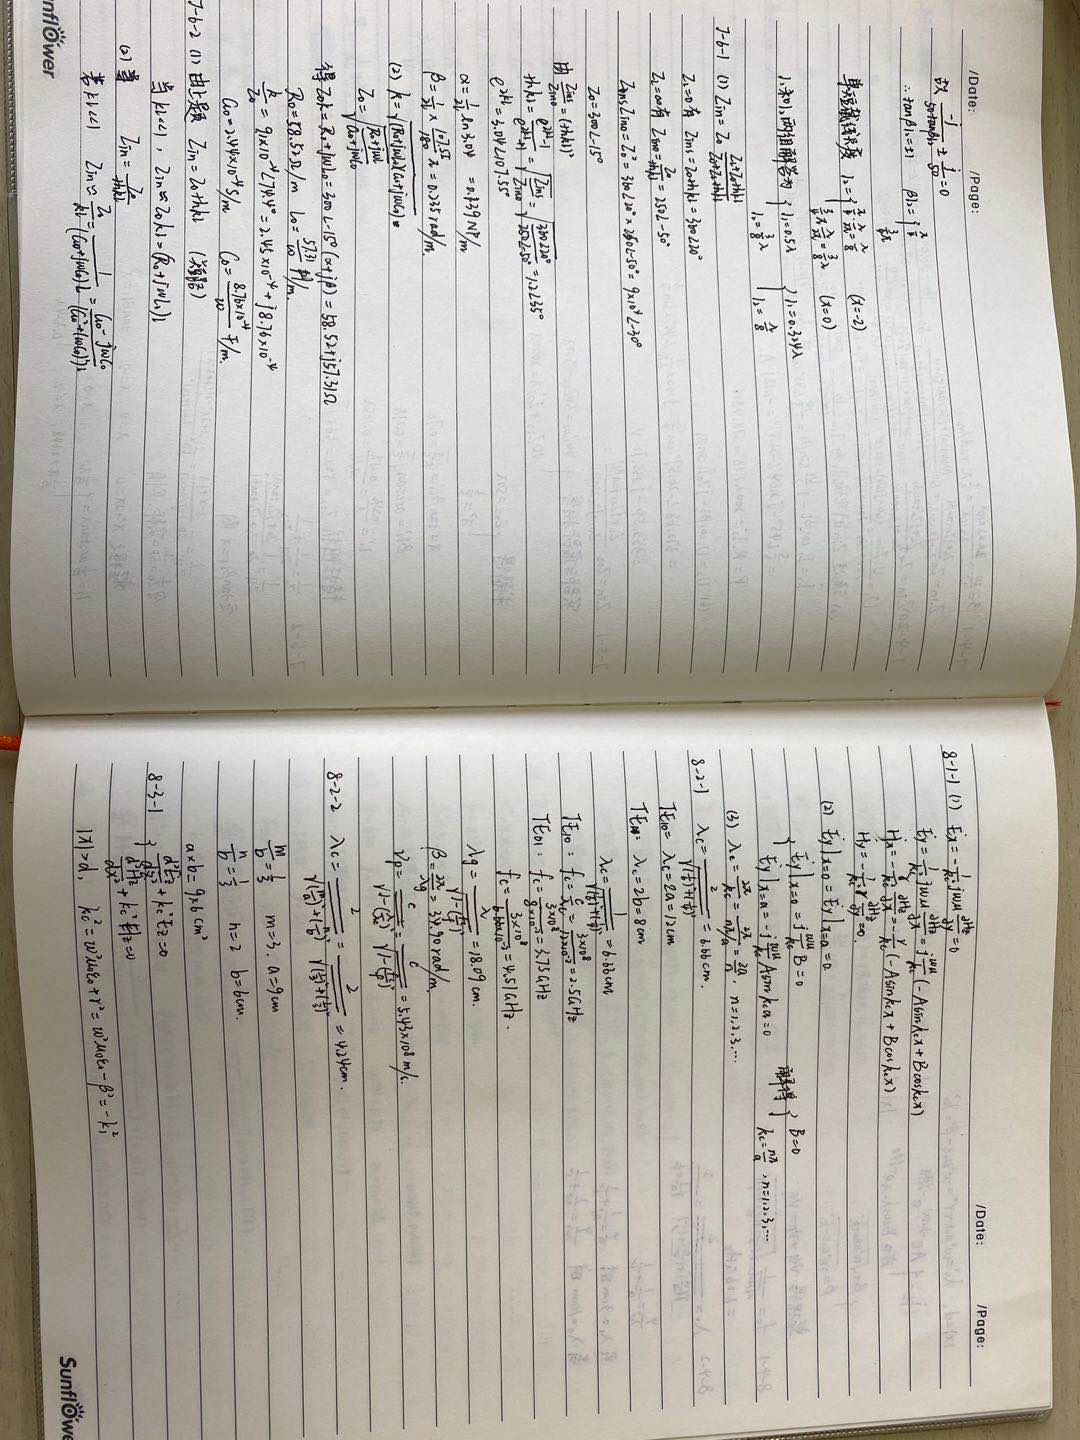 /Date:
/Page:
故 -j/(50tanβl₂) ± j/50 = 0
∴ tanβl₂=±1
单短截线长度
(x=-2)
(x=0)
l₁和l₂两组解答为 { l₁=0.5λ l₂=3/8 λ { l₁=0.324λ l₂=λ/8
7-6-1 (1) Zin=Z₀
ZL=0有 Zins=Z₀thkl=360∠20°
ZL=∞有 Zin∞=Z₀/thkl=250∠-50°
Zins Zin∞=Z₀²=360∠20°×250∠-50°=9×10⁴∠-30°
Z₀=300∠-15°
由 Zins/Zin∞=(thkl)²
thkl=(e^(2kl)-1)/(e^(2kl)+1)=√(Zins/Zin∞)=√(360∠20°/250∠-50°)=1.2∠35°
e^(2kl)=3.04∠107.55°
α=1/2l ln3.04 =0.139 NP/m
β=1/2l × 107.55/180 π=0.235 rad/m.
(2) k=√((R₀+jωL₀)(G₀+jωC₀))
Z₀=√((R₀+jωL₀)/(G₀+jωC₀))
得 Z₀k=R₀+jωL₀=300∠-15°(α+jβ)=58.52+j57.31Ω
R₀=58.52Ω/m L₀=57.31/ω H/m.
k/Z₀=9.1×10⁻⁴∠74.4°=2.45×10⁻⁴+j8.76×10⁻⁴
G₀=2.44×10⁻⁴S/m C₀=8.76×10⁻⁴/ω F/m.
7-6-2 (1) 由上题 Zin=Z₀thkl
当|kl|<<1, Zin≈Z₀kl=(R₀+jωL₀)l
(2) Zin=Z₀/thkl
若kl<<1 Zin≈Z₀/kl=1/((G₀+jωC₀)l)=(G₀-jωC₀)/((G₀²+(ωC₀)²)l
Sunflower
/Date:
/Page:
8-1-1 (1) Ex=-1/kc² jωμ ∂Hz/∂y=0
Ey=1/kc² jωμ ∂Hz/∂x=j ωμ/kc (-Asinkcx+Bcoskcx)
Hx=-γ/kc² ∂Hz/∂x=-γ/kc(-Asinkcx+Bcoskcx)
Hy=-1/kc² γ ∂Hz/∂y=0.
(2) Ey|x=0=Ey|x=a=0
{ Ey|x=0=j ωμ/kc B=0
Ey|x=a=-j ωμ/kc Asinkca=0
解得 { B=0 kc=nπ/a, n=1,2,3,…
(3) λc=2π/kc=2π/(nπ/a)=2a/n, n=1,2,3,…
8-2-1 λc=2/√((1/a)²+(1/b)²)=6.66cm.
TE₁₀=λc=2a=12cm
TE₀₁: λc=2b=8cm
λc=6.66cm
TE₁₀: fc=c/λc=3×10⁸/12×10⁻²=2.5GHz
TE₀₁: fc=3×10⁸/8×10⁻²=3.75GHz
fc=3×10⁸/6.66×10⁻²=4.51GHz.
λg=λ/√(1-(λ/λc)²)=18.09cm.
β=2π/λg=34.90rad/m.
Vp=c/√(1-(λ/λc)²)=5.43×10⁸m/s.
8-2-2 λc=2/√((m/a)²+(n/b)²)=4.24cm.
m=3. a=9cm
n/b=1/3 n=2 b=6cm.
a×b=9×6cm²
8-3-1 { d²Ez/dx²+kc²Ez=0
d²Hz/dx²+kc²Hz=0
|x|>d, kc²=ω²μ₀ε₀+γ²=ω²μ₀ε₀-β²=-k₁²
Sunflower